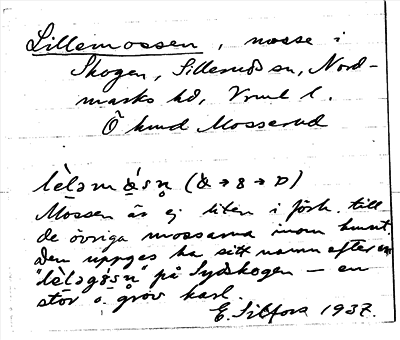 Lillemossen, mosse i
Skogen, Sillerud sn, Nord-
marks hd, Vrml l.
Ö kmd Mosserud
Mossen är ej liten i förh. till
de övriga mossarna inom kmnt.
Den uppges ha sitt namn efter en
på Sydskogen — en
stor o. grov karl.
E. Silfors 1937.